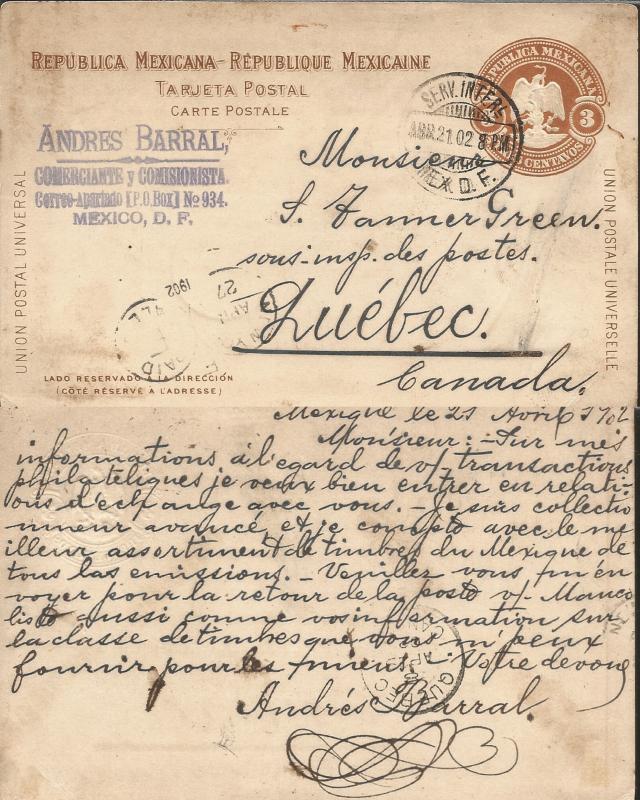 REPÚBLICA MEXICANA-RÉPUBLIQUE MEXICAINE
TARJETA POSTAL
CARTE POSTALE
REPUBLICA MEXICANA
3
CENTAVOS
SERV. INTERIOR
ABR. 21. 02 8 PM
MEX. D. F.
ANDRES BARRAL,
COMERCIANTE y COMISIONISTA.
Correo-Apartado [P.O. Box] No 934.
MEXICO, D, F.
UNION POSTAL UNIVERSAL
UNION POSTALE UNIVERSELLE
Monsieur
S. Tanner Green.
sous-insp. des postes.
Québec.
Canada.
27
1902
LADO RESERVADO Á LA DIRECCIÓN
(CÔTÉ RÉSERVÉ A L'ADRESSE)
Mexique le 21 Avril 1902
Monsieur: - Sur mes
informations à l'egard de v/ transactions
philateliques je veux bien entrer en relati-
ons d'echange avec vous. - Je suis collectio
nneur avancé, et je compto avec le me
illeur assortiment de timbres du Mexique de
tous las emissions. - Veuillez vous m'en
voyer pour la retour de la posto v/ Manco
listo aussi comme vos information sur
la classe de timbres que vous m' peux
fournir pour les miens. - Votre devoué
QUEBEC
Andrés Barral.